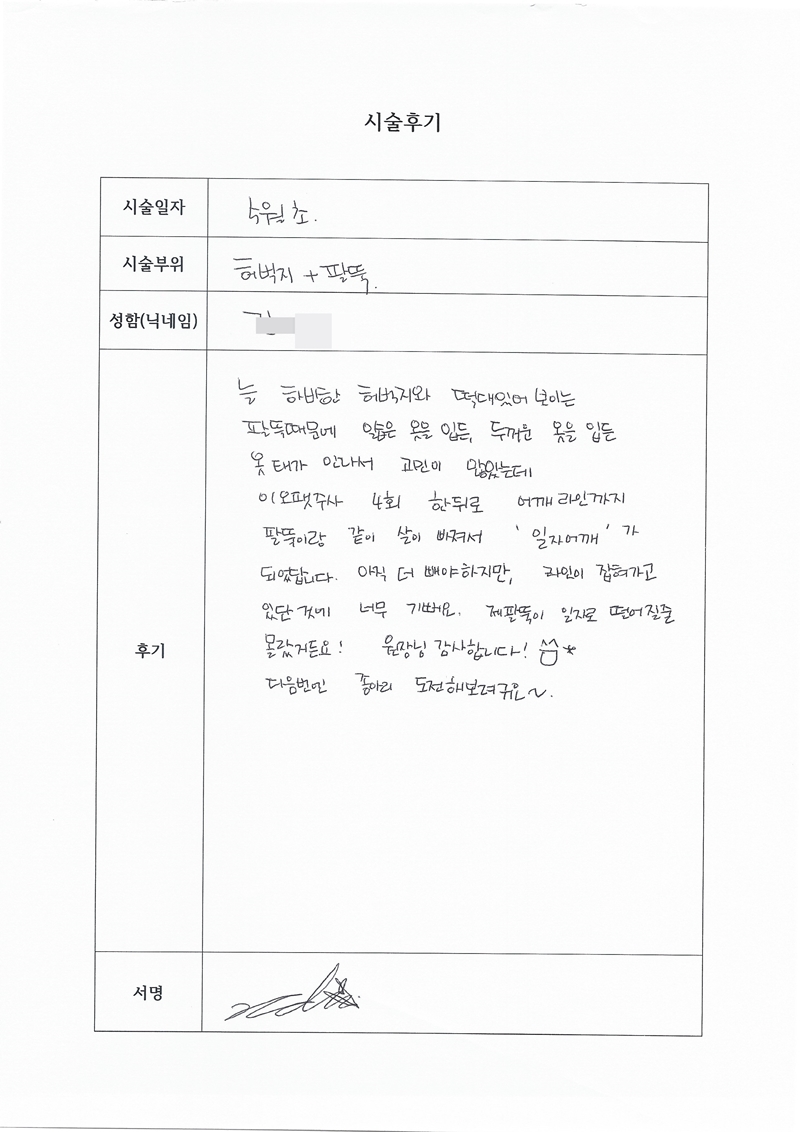 시술후기
시술일자
수월 초.
시술부위
허벅지 + 팔뚝.
성함(닉네임)
후기
늘 하비한 허벅지와 떡대있어 보이는
팔뚝때문에 얇은 옷을 입든, 두꺼운 옷을 입든
옷 태가 안나서 고민이 많았는데
이오팻주사 4회 한뒤로 어깨라인까지
팔뚝이랑 같이 살이 빠져서 '일자어깨'가
되었답니다. 아직 더 빼야하지만, 라인이 잡혀가고
있단 것에 너무 기뻐요. 제팔뚝이 일자로 떨어질줄
몰랐거든요! 원장님 감사합니다!
다음번엔 종아리 도전해보려구요~.
서명